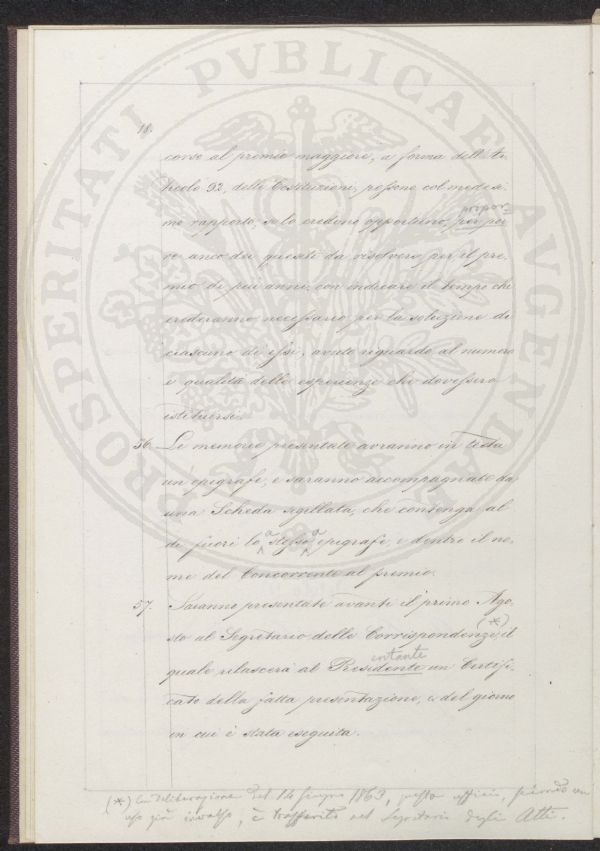 PROSPERITATI PVBLICAE AVGENDAE
18.
corso al premio maggiore, a forma dell'Ar-
ticolo 92, delle Costituzioni, possono col medesi-
mo rapporto, se lo credono opportuno, per por
propor=
re anco dei quesiti da risolvere per il pre-
mio di più anni, con indicare il tempo che
crederanno necessario per la soluzione di
ciascuno di essi, avuto riguardo al numero
e qualità delle esperienze che dovessero
istituirsi.
56. Le memorie presentate avranno in testa
un'epigrafe, e saranno accompagnate da
una Scheda sigillata, che contenga al
di fuori la stessa epigrafe, e dentro il no-
me del Concorrente al premio.
57. Saranno presentate avanti il primo Ago-
sto al Segretario delle Corrispondenze (*) il
quale rilascerà al Presidente un Certifi-
entante
cato della fatta presentazione, e del giorno
in cui è stata eseguita.
(*) Con deliberazione del 14 Giugno 1863, questo ufficio, secondo un
uso già invalso, è trasferito nel Segretario degli Atti.